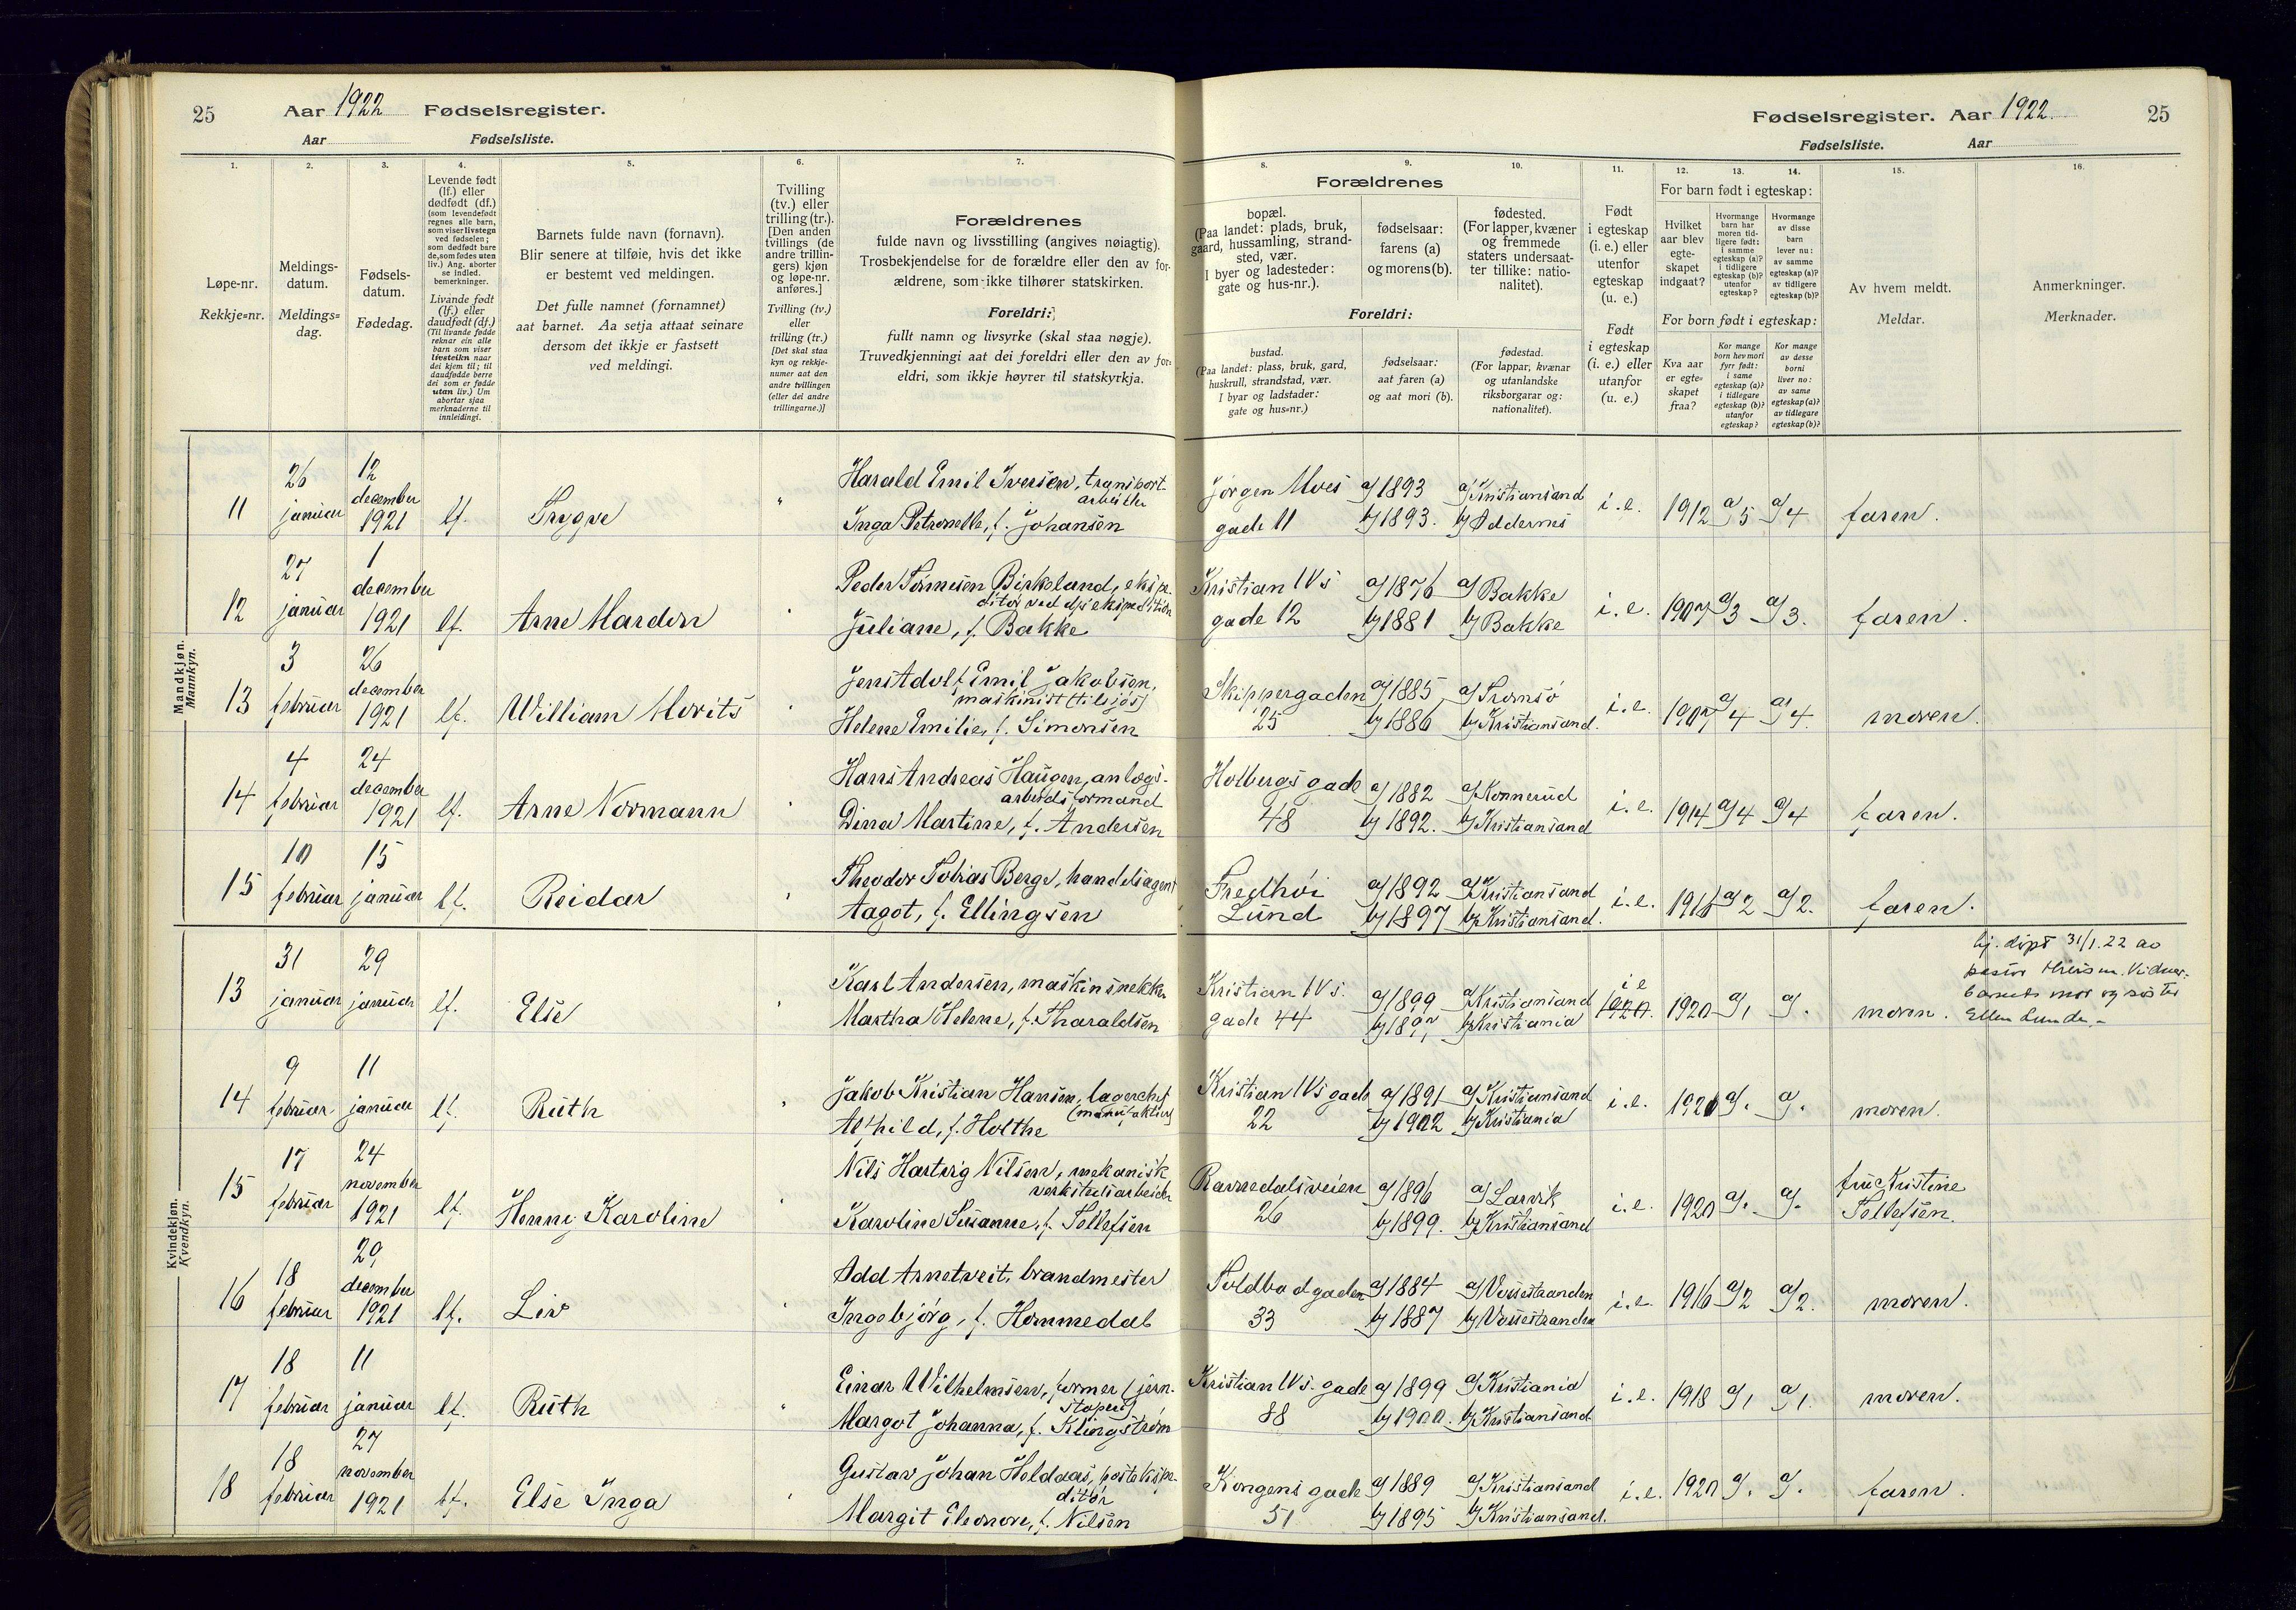 25 Aar 1922 Fødselsregister.
Aar Fødselsliste.
Fødselsregister. Aar 1922. 25
Fødselsliste. Aar
1. 2. 3. 4. 5. 6. 7.
Løpe-nr.
Rekkje-nr.
Meldings-
datum.
Meldings-
dag.
Fødsels-
datum.
Fødedag.
Levende født
(lf.) eller
dødfødt (df.)
(som levendefødt
regnes alle barn,
som viser livstegn
ved fødselen;
som dødfødt bare
de, som fødes uten
liv.) Ang. aborter
se indled.
bemerkninger.
Livande født
(lf.) eller
daudfødt (df.)
(Til livande fødde
reknar ein alle
barn som viser
livsteikn naar
dei kjem til; til
daudfødde berre
dei som er fødde
utan liv.) Um
abortar sjaa
merknaderne til
innleidingi.
Barnets fulde navn (fornavn).
Blir senere at tilføie, hvis det ikke
er bestemt ved meldingen.
Det fulle namnet (fornamnet)
aat barnet. Aa setja attaat seinare
dersom det ikkje er fastsett
ved meldingi.
Tvilling
(tv.) eller
trilling (tr.).
[Den anden
tvillings (de
andre trillin-
gers) kjøn
og løpe-nr.
anføres.]
Tvilling (tv.)
eller
trilling (tr.)
[Det skal staa
kyn og rekkje-
numer aat den
andre tvillingen
(eller dei andre
trillingarne.)]
Forældrenes
fulde navn og livsstilling (angives nøiagtig).
Trosbekjendelse for de forældre eller den av for-
ældrene, som ikke tilhører statskirken.
Foreldri:
fullt namn og livsyrke (skal staa nøgje).
Truvedkjenningi aat dei foreldri eller den av for-
eldri, som ikkje høyrer til statskyrkja.
8. 9. 10. 11. 12. 13. 14. 15. 16.
Forældrenes
bopæl.
(Paa landet: plads, bruk,
gaard, hussamling, strand-
sted, vær.
I byer og ladesteder:
gate og hus-nr.).
fødselsaar:
farens (a)
og morens (b).
fødested.
(For lapper, kvæner
og fremmede
staters undersaat-
ter tillike: natio-
nalitet).
Foreldri:
bustad.
(Paa landet: plass, bruk, gard,
huskrull, strandstad, vær.
I byar og ladstader:
gate og hus-nr.)
fødselsaar:
aat faren (a)
og aat mori (b).
fødestad.
(For lappar, kvænar
og utanlandske
riksborgarar og:
nationalitet).
Født
i egteskap
(i. e.) eller
utenfor
egteskap
(u. e.)
Født
i egteskap
(i. e.) eller
utanfor
egteskap
(u. e.)
For barn født i egteskap:
Hvilket
aar blev
egte-
skapet
indgaat?
Hvormange
barn har
moren tid-
ligere født:
i samme
egteskap (a)?
i tidligere
egteskap (b)?
utenfor
egteskap?
Hvormange
av disse
barn
lever nu:
av samme
egteskap (a)?
av tidligere
egteskap (b)?
For born født i egteskap:
Kva aar
er egte-
skapet
fraa?
Kor mange
born hev mori
fyrr født:
i same
egteskap (a)?
i tidlegare
egteskap (b)?
utanfor
egteskap?
Kor mange
av desse
borni
liver no:
av same
egteskap (a)?
av tidlegare
egteskap (b)?
Av hvem meldt.
Meldar.
Anmerkninger.
Merknader.
Mandkjøn.
Mannkyn.
11 26 januar 12 december 1921 lf. Trygve " Harald Emil Iversen, transport
arbeider
Inga Petronelle, f. Johansen
Jørgen Moes gade 11 a/ 1893 b/ 1893. a/ Kristiansand b/ Oddernes i. e. 1912 a/ 5 a/ 4 faren.
12 27 januar 1 december 1921 lf. Arne Mardon " Peder Tønnesen Birkeland, ekspe-
ditør ved d/s ekspedition
Juliane, f. Bakke
Kristian IVs gade 12 a/ 1876 b/ 1881 a/ Bakke b/ Bakke i. e. 1907 a/ 3 a/ 3. faren.
13 3 februar 26 december 1921 lf. William Morits " Jens Adolf Emil Jakobsen,
maskinist (tilsjøs)
Helene Emilie, f. Simonsen
Skippergaden 25 a/ 1885 b/ 1886 a/ Tromsø b/ Kristiansand. i. e. 1907 a/ 4 a/ 4. moren.
14 4 februar 24 december 1921 lf. Arne Normann " Hans Andreas Haugen, anlægs-
arbeidsformand
Dina Martine, f. Andersen
Holbergs gade 48 a/ 1882 b/ 1892. a/ Konnerud b/ Kristiansand i. e. 1914 a/ 4 a/ 4 faren.
15 10 februar 15 januar lf. Reidar " Theodor Tobias Berge, handelsagent
Aagot, f. Ellingsen
Fredhøi Lund a/ 1892 b/ 1897 a/ Kristiansand b/ Kristiansand. i. e. 1916 a/ 2 a/ 2. faren.
Kvindekjøn.
Kvendkyn.
13 31 januar 29 januar lf. Else " Karl Andersen, maskinsnekker
Martha Helene, f. Tharaldsen
Kristian IVs. gade 44 a/ 1899 b/ 1897 a/ Kristiansand b/ Kristiania i e 1920. 1920 a/ 1 a/ . moren.
hj. døpt 31/1. 22 av
pastor Vidner:
barnets mor og søster
Ellen Lunde. -
14 9 februar 11 januar lf. Ruth " Jakob Kristian Hansen, lagerchef
(manufaktur)
Alfhild, f. Holthe
Kristian IVs gade 22 a/ 1891 b/ 1902 a/ Kristiansand b/ Kristiania i. e. 1920 a/ . a/ . moren.
15 17 februar 24 november 1921 lf. Henny Karoline " Nils Hartvig Nilsen, mekanisk
verkstedsarbeider
Karoline Susanne, f. Tellefsen
Ravnedalsveien 26 a/ 1896 b/ 1899. a/ Larvik b/ Kristiansand i. e. 1920 a/ . a/ . frue Kristine
Tellefsen.
16 18 februar 29 december 1921 lf. Liv " Odd Arnetveit, brandmester
Ingebjørg, f. Hommedal
Toldbodgaden 33 a/ 1884 b/ 1887 a/ Vossestranden b/ Vossestranden i. e. 1916 a/ 2 a/ 2. moren.
17 18 februar 11 januar lf. Ruth " Einar Wilhelmsen, former (jern-
støperi)
Margot Johanna, f. Klingstrøm
Kristian IVs. gade 88 a/ 1899 b/ 1900. a/ Kristiania b/ Kristiansand i. e. 1918 a/ 1 a/ 1. moren.
18 18 februar 27 november 1921 lf. Else Inga " Gustav Johan Heldaas, postekspe-
ditør
Margit Eleonore, f. Nilsen
Kongens gade 51 a/ 1889 b/ 1895 a/ Kristiansand b/ Kristiansand. i. e. 1920 a/ . a/ . faren.